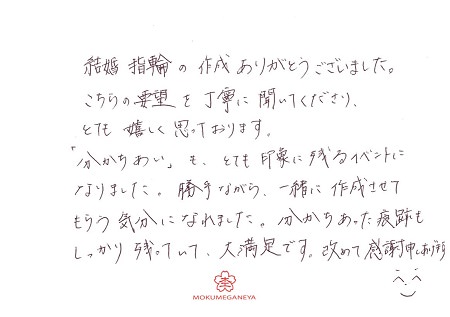 結婚指輪の作成ありがとうございました。
こちらの要望を丁寧に聞いてくださり、
とても嬉しく思っております。
「分かちあい」も、とても印象に残るイベントに
なりました。勝手ながら、一緒に作成させて
もらう気分になれました。分かちあった痕跡も
しっかり残っていて、大満足です。改めて感謝申し上げます
MOKUMEGANEYA